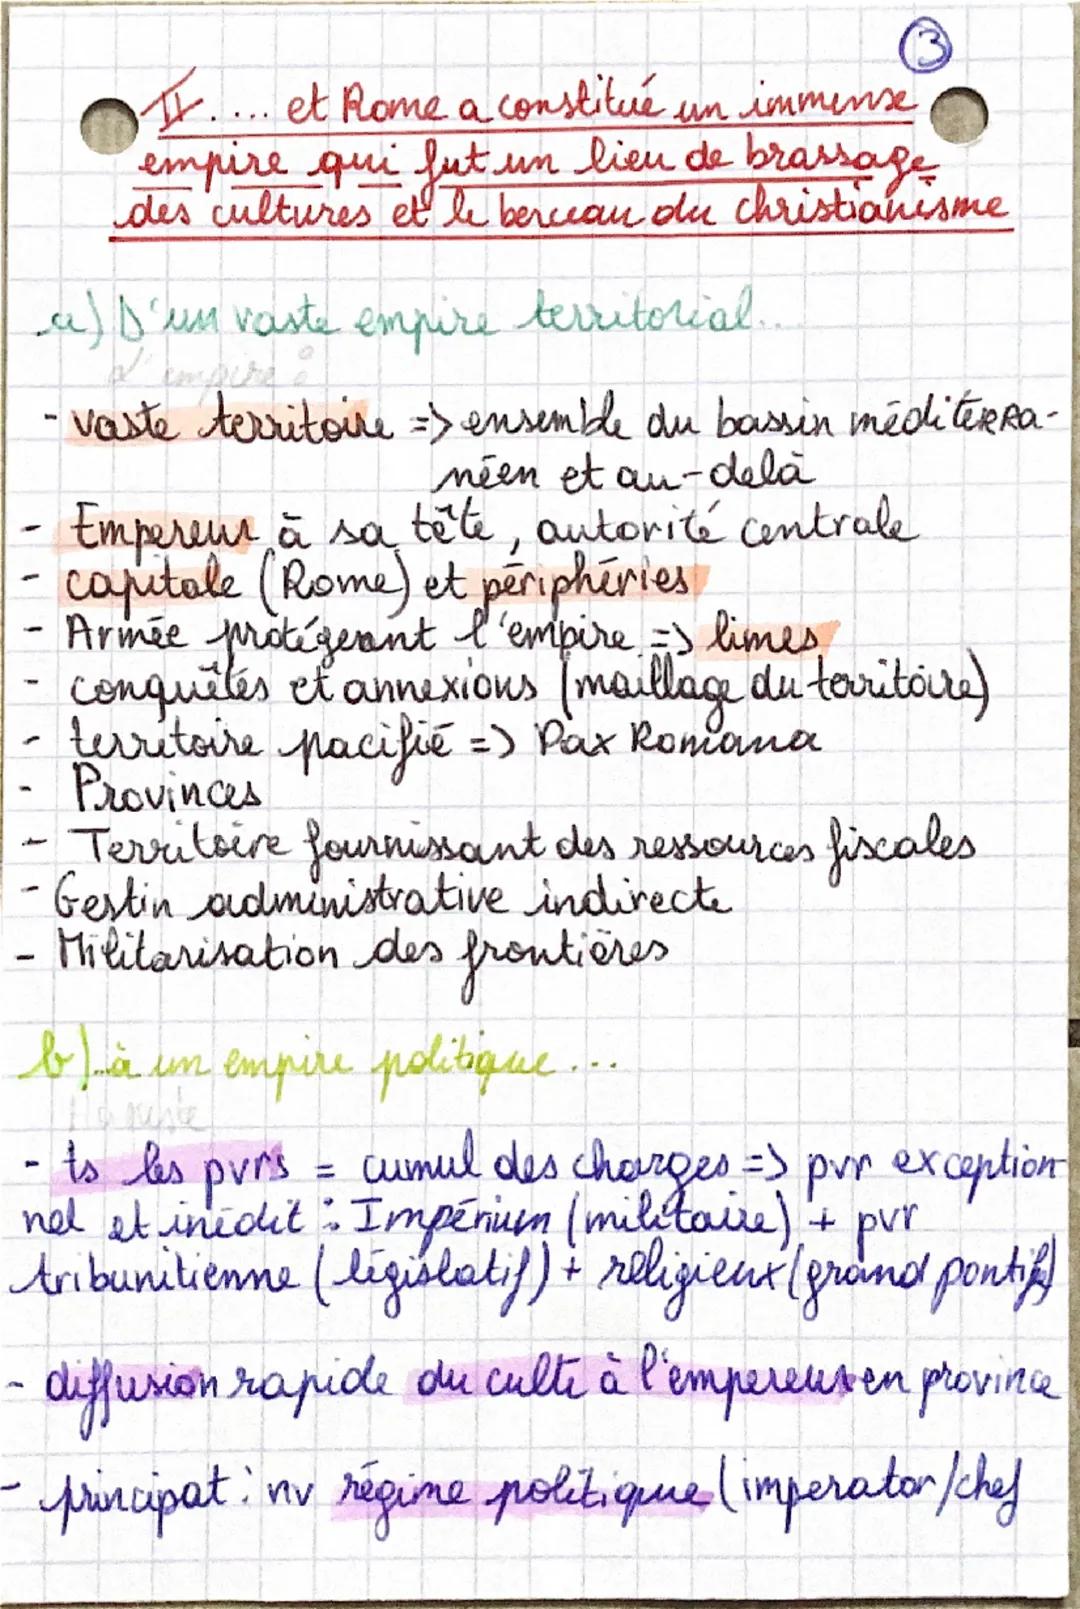 3
II.... et Rome a constitué un immense
empire qui fut un lieu de brassage
des cultures et le berceau du christianisme
a) D'un vaste empire territorial...
d'empire :
- vaste territoire => ensemble du bassin méditerra-
néen et au-delà
- Empereur à sa tête, autorité centrale
- capitale (Rome) et périphéries
- Armée protégeant l'empire => limes
- conquêtes et annexions (maillage du territoire)
- territoire pacifié => Pax Romana
- Provinces
- Territoire fournissant des ressources fiscales
- Gestin administrative indirecte
- Militarisation des frontières
b)..à un empire politique...
- ts les pvrs = cumul des charges => pvr exception-
nel et inédit : Impérium (militaire) + pvr
tribunitienne (législatif) + religieux (grand pontife)
- diffusion rapide du culte à l'empereur en province
- principat : nv régime politique (imperator/chef